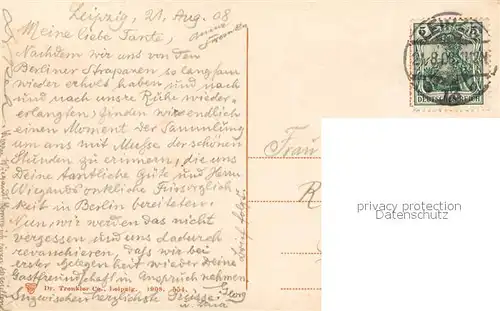 Leipzig, 21. Aug. 08
Meine liebe Tante,
Nachdem wir uns von den
Berliner Strapazen so langsam
wieder erholt haben und nach
und nach unsre Ruhe wieder-
erlangten, finden wir endlich
einen Moment der Sammlung
um uns mit Musse der schönen
Stunden zu erinnern, die uns
Deine tantliche Güte und Herrn
Wiegands onkliche Fürsorglich-
keit in Berlin bereiteten.
Nun, wir werden das nicht
vergessen und uns dadurch
revanchieren, dass wir bei
erster Gelegenheit wieder Deine
Gastfreundschaft in Anspruch nehmen
Inzwischen herzlichste Grüsse: Georg
u.
Dr. Trenkler Co., Leipzig. 1908. 554
5
5
DEUTSCHES REICH
21.8.08
Frau
privacy protection
www.oldthing.com